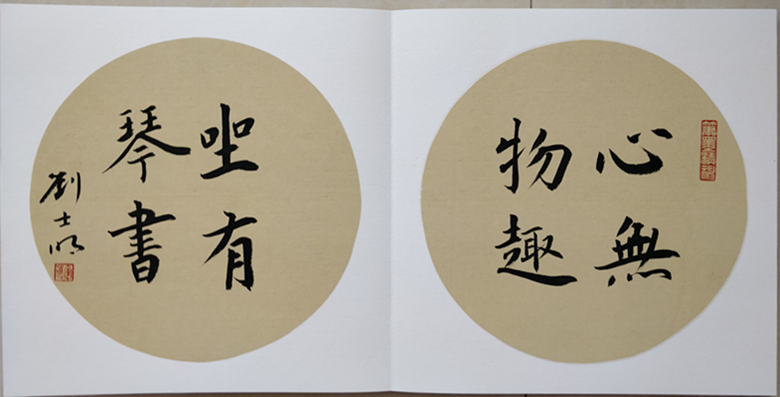 心無
物趣
坐有
琴書
劉士明